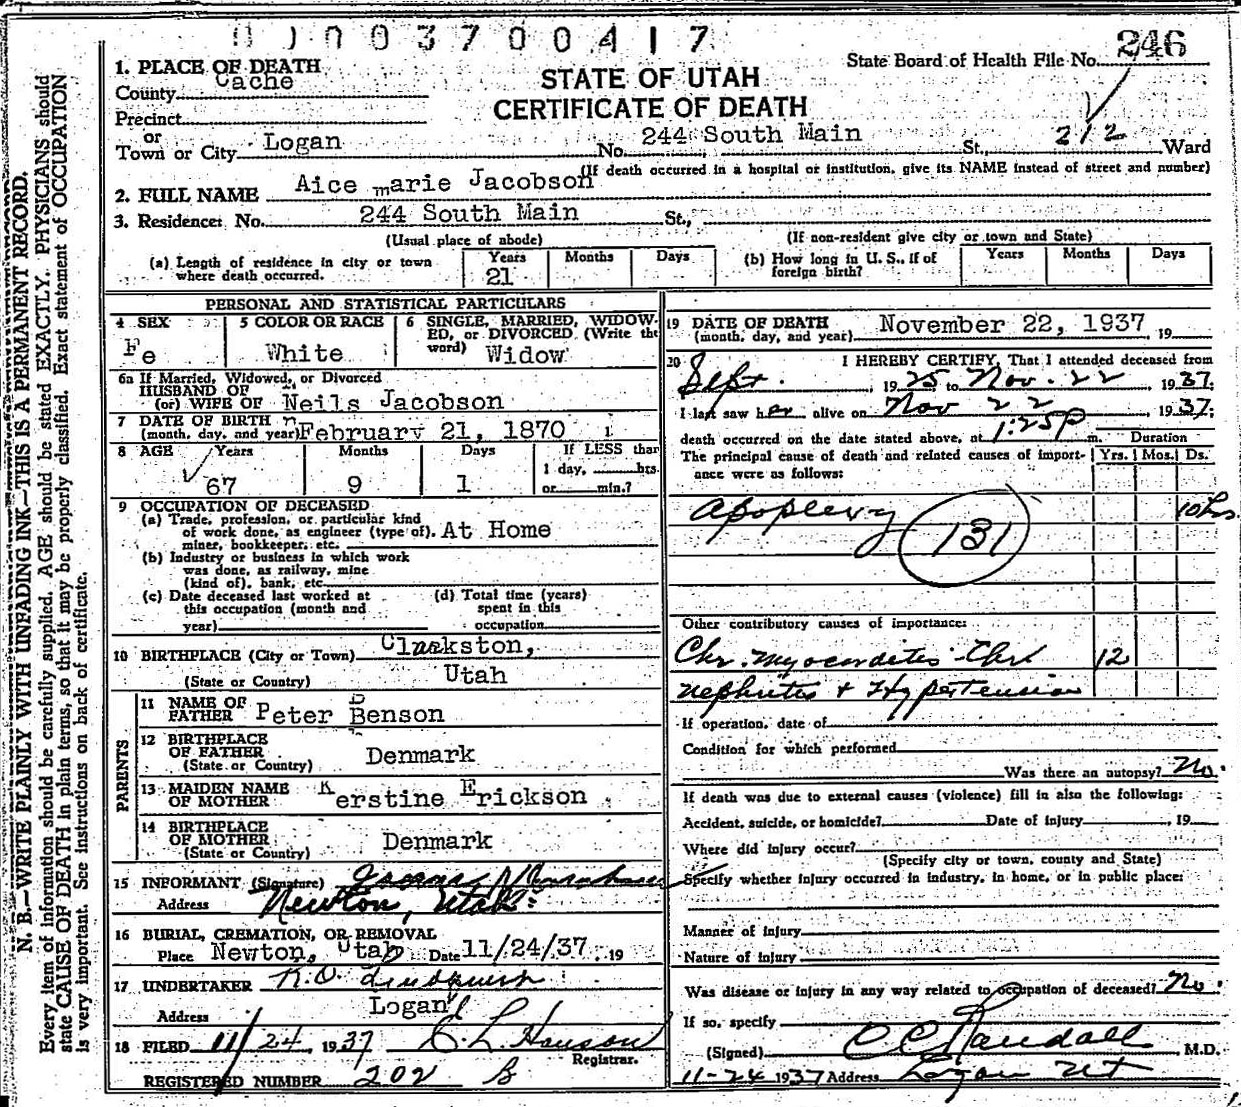 0 0 0 0 3 7 0 0 4 1 7
State Board of Health File No. 246
1. PLACE OF DEATH
County Cache
STATE OF UTAH
CERTIFICATE OF DEATH
Precinct
or
Town or City Logan No. 244 South Main St., 212 Ward
(If death occurred in a hospital or institution, give its NAME instead of street and number)
2. FULL NAME Aice marie Jacobson
3. Residence: No. 244 South Main St.,
(Usual place of abode) (If non-resident give city or town and State)
(a) Length of residence in city or town where death occurred. Years 21 Months Days
(b) How long in U. S., if of foreign birth? Years Months Days
PERSONAL AND STATISTICAL PARTICULARS
4 SEX Fe
5 COLOR OR RACE White
6 SINGLE, MARRIED, WIDOWED, or DIVORCED (Write the word) Widow
6a If Married, Widowed, or Divorced
HUSBAND OF
(or) WIFE OF Neils Jacobson
7 DATE OF BIRTH
(month, day, and year) February 21, 1870
8 AGE Years 67 Months 9 Days 1 If LESS than 1 day, hrs. or min.?
9 OCCUPATION OF DECEASED
(a) Trade, profession, or particular kind
of work done, as engineer (type of). At Home
miner, bookkeeper, etc.
(b) Industry or business in which work
was done, as railway, mine
(kind of), bank, etc.
(c) Date deceased last worked at this occupation (month and year)
(d) Total time (years) spent in this occupation
10 BIRTHPLACE (City or Town) Clarkston,
(State or Country) Utah
PARENTS
11 NAME OF FATHER Peter Benson
12 BIRTHPLACE
OF FATHER
(State or Country) Denmark
13 MAIDEN NAME OF MOTHER Kerstine Erickson
14 BIRTHPLACE
OF MOTHER
(State or Country) Denmark
15 INFORMANT (Signature)
Address Newton, Utah
16 BURIAL, CREMATION, OR REMOVAL
Place Newton, Utah Date 11/24/37. 19
17 UNDERTAKER R.O. Lindquist
Address Logan
18 FILED 11/24, 1937 C L Hanson
Registrar.
REGISTERED NUMBER 202 B
19 DATE OF DEATH
(month, day, and year) November 22, 1937, 19
20 I HEREBY CERTIFY, That I attended deceased from
Sept. 1925 to Nov. 22 1937;
I last saw her alive on Nov 22 1937;
death occurred on the date stated above, at 1:25p m.
Duration
The principal cause of death and related causes of importance were as follows: Yrs. Mos. Ds.
Apoplexy 131 10 hrs
Other contributory causes of importance:
Chr. Myocarditis Chr 12
Nephritis + Hypertension
If operation, date of
Condition for which performed
Was there an autopsy? No.
If death was due to external causes (violence) fill in also the following:
Accident, suicide, or homicide? Date of injury , 19
Where did injury occur?
(Specify city or town, county and State)
Specify whether injury occurred in industry, in home, or in public place:
Manner of injury
Nature of injury
Was disease or injury in any way related to occupation of deceased? No.
If so, specify
(Signed) C C Randall, M.D.
11-24 1937 Address Logan Ut
N. B.—WRITE PLAINLY WITH UNFADING INK—THIS IS A PERMANENT RECORD.
Every item of information should be carefully supplied. AGE should be stated EXACTLY. PHYSICIANS should
state CAUSE OF DEATH in plain terms, so that it may be properly classified. Exact statement of OCCUPATION
is very important. See instructions on back of certificate.